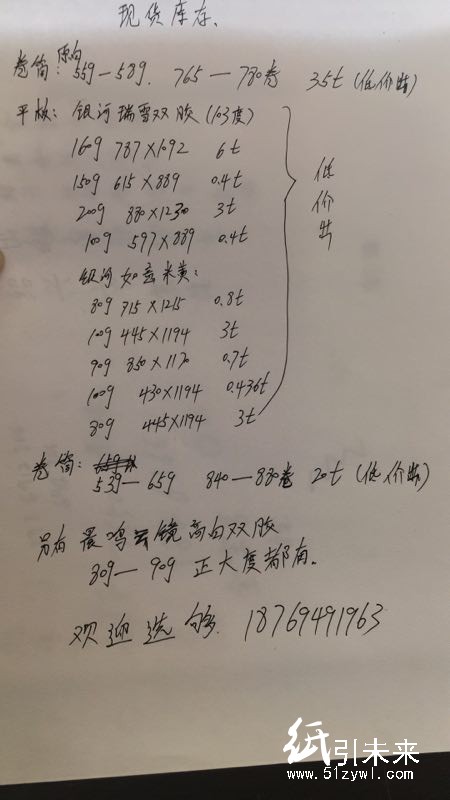 现货库存、
卷筒: 原白 55g—58g. 765—780卷 35t (低价出)
平板: 银河瑞雪双胶 (103度)
160g 787×1092 6t
150g 615×889 0.4t
200g 880×1230 3t
100g 597×889 0.4t
低价出
银河如意米黄:
80g 715×1215 0.8t
100g 445×1194 3t
90g 850×1170 0.7t
100g 430×1194 0.436t
80g 445×1194 3t
卷筒: 53g—65g 840—880卷 20t (低价出)
另有 晨鸣云镜高白双胶
80g—90g 正大度都有。
欢迎选购. 18769491963
纸引未来
www.51zywl.com